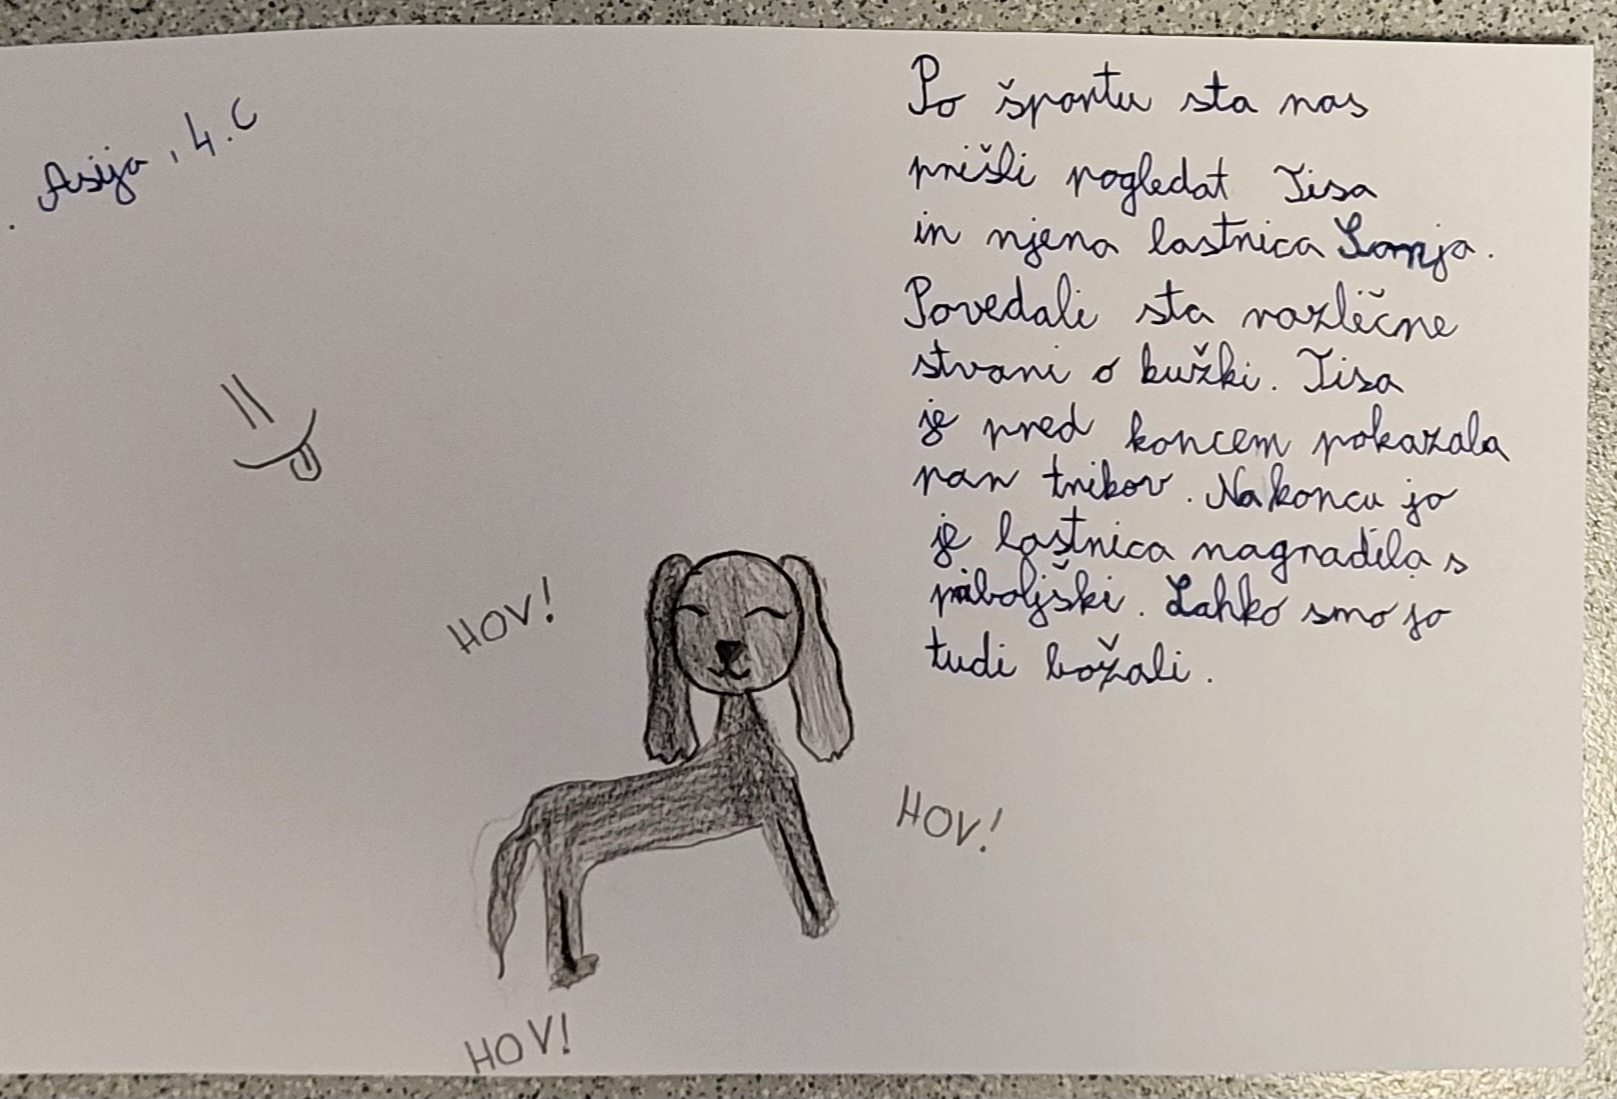 Asija, 4. C
Po športu sta nas
prišli pogledat Tisa
in njena lastnica Sonja.
Povedali sta različne
stvari o kužki. Tisa
je pred koncem pokazala
par trikov. Na koncu jo
je lastnica nagradila s
priboljški. Lahko smo jo
tudi božali.
HOV!
HOV!
HOV!